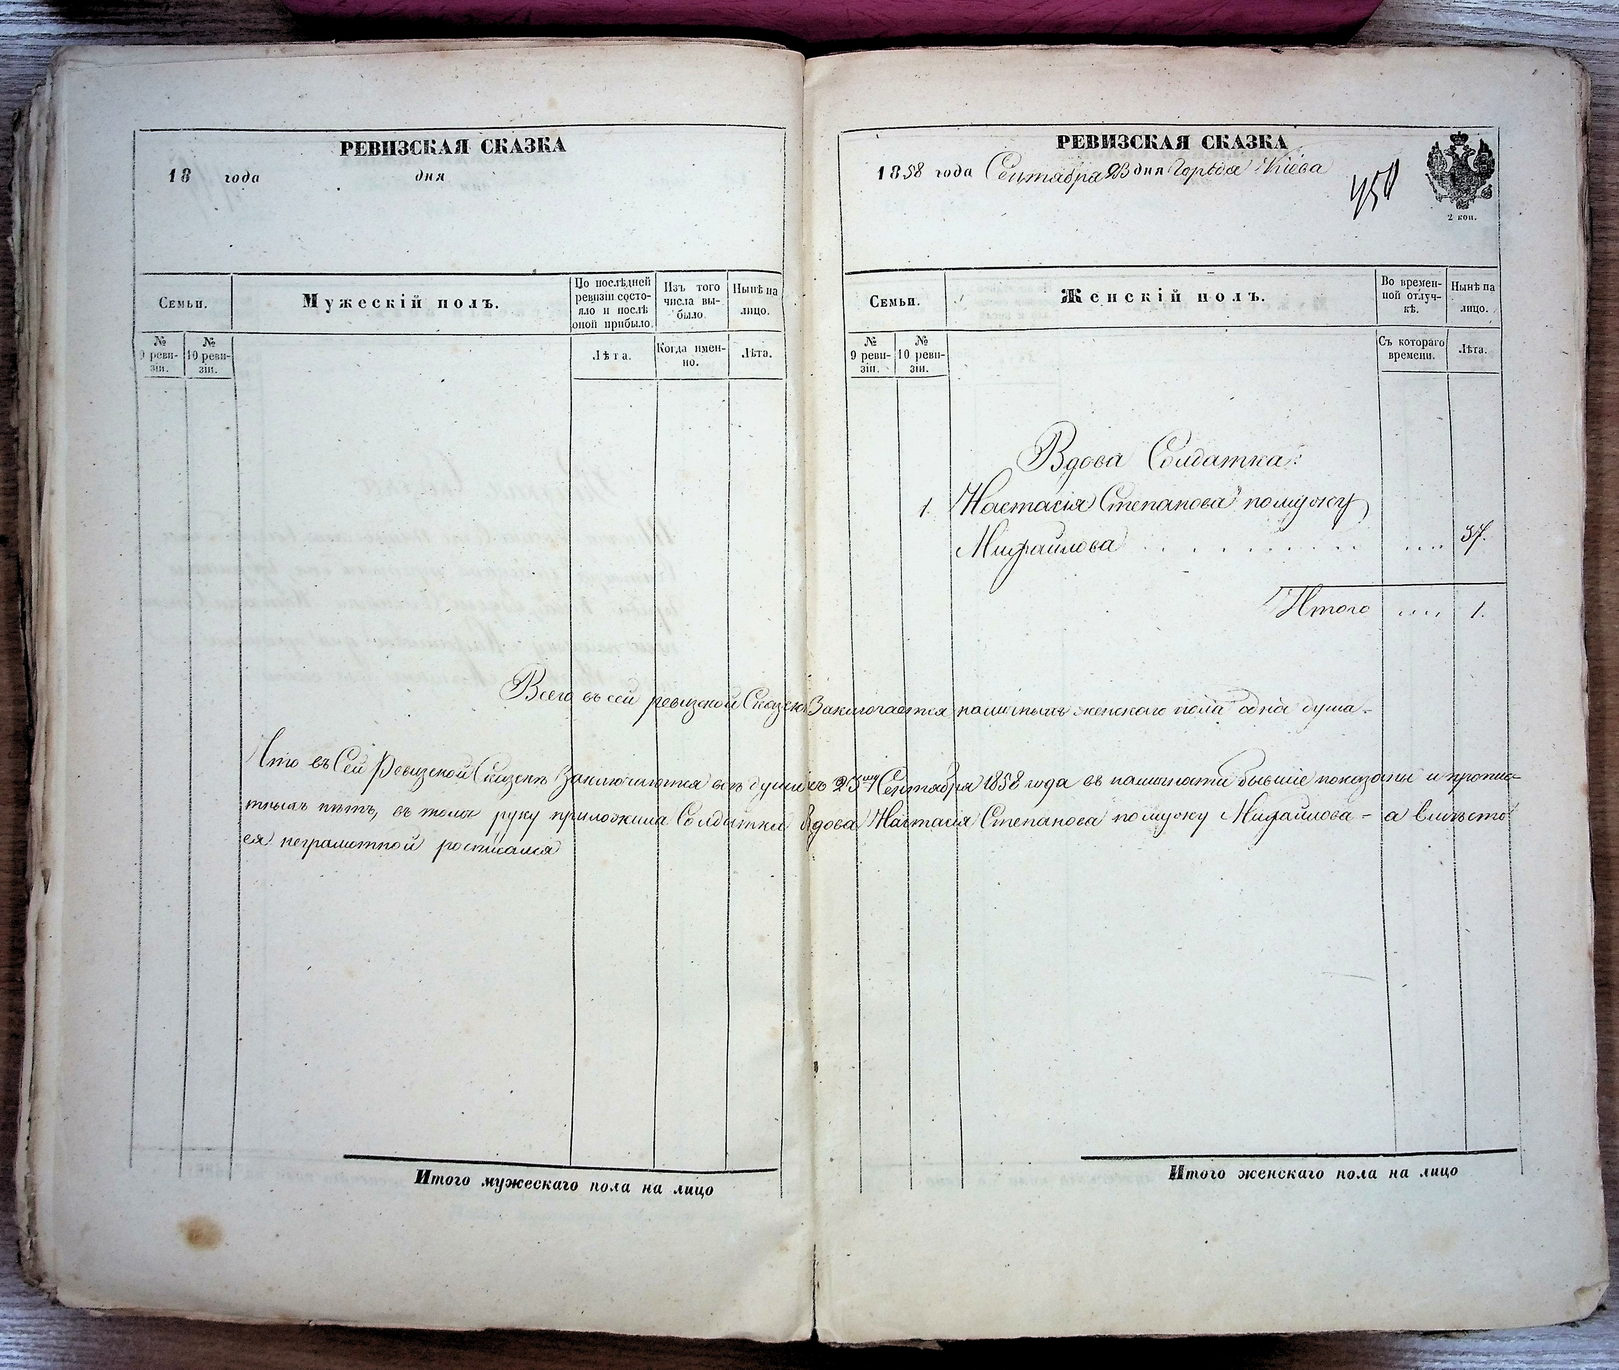 РЕВИЗСКАЯ СКАЗКА
18 года дня
Семьи.
Мужескій полъ.
По послѣдней ревизіи состояло и послѣ оной прибыло.
Изъ того числа выбыло.
Нынѣ на лицо.
№ 9 ревизіи.
№ 10 ревизіи.
Лѣта.
Когда именно.
Лѣта.
РЕВИЗСКАЯ СКАЗКА
1858 года Сентября 23 дня Города Кіева
2 коп.
Семьи.
Женскій полъ.
Во временной отлучкѣ.
Нынѣ на лицо.
№ 9 ревизіи.
№ 10 ревизіи.
Съ котораго времени.
Лѣта.
Вдова Солдатка:
1. Настасія Степанова помужу
Михайлова . . . . . . . . . . 37.
Итого .... 1.
Всего въ сей ревизской Сказкѣ Заключается наличныхъ женскаго пола одна душа.
Что въ Сей Ревизской Сказкѣ Заключаются всѣ души къ Сентября 1858 года въ наличности бывшіе показаны и пропис-
ныхъ нѣтъ, въ томъ руку приложила Солдатка Вдова Настасія Степанова помужу Михайлова - а вмѣсто
ея неграмотной росписался
Итого мужескаго пола на лицо
Итого женскаго пола на лицо